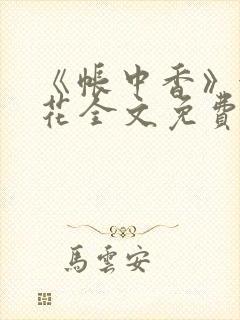 《帐中香》
花全文免费
馬雲安